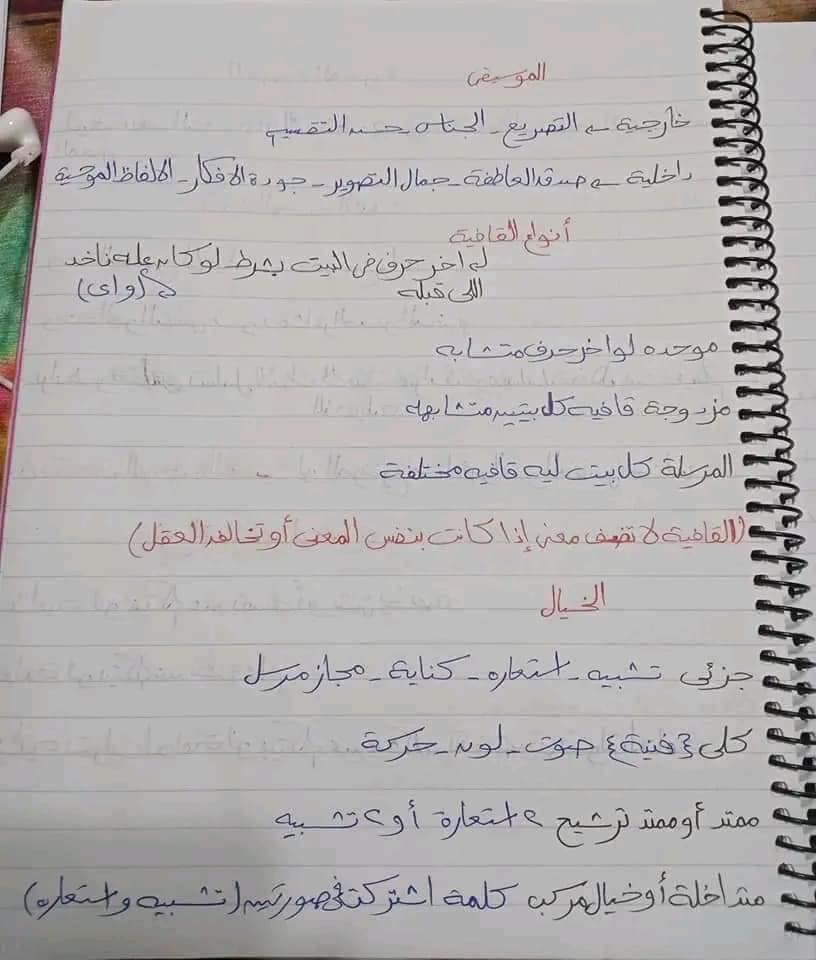 الموسيقى
خارجية ← التصريع - الجناس - حسن التقسيم
داخلية ← صدق العاطفة - جمال التصوير - جودة الافكار - الالفاظ الموحية
أنواع القافية
اخر حرف فى البيت بشرط لو كان علة ناخد
اللى قبله (واى)
موحده لو اخر حرف متشابه
مزدوجة قافيه كل بيتين متشابهه
المرسلة كل بيت ليه قافيه مختلفة
(القافية لا تضيف معنى إذا كانت بنفس المعنى أو تخالف العقل)
الخيال
جزئى تشبيه - استعاره - كناية - مجاز مرسل
كلى {فنية} صوت - لون - حركة
ممتد أو ممتد ترشيح ٢ استعارة أو ٢ تشبيه
متداخلة أو خيال مركب كلمة اشتركت فى صورتين (تشبيه واستعاره)